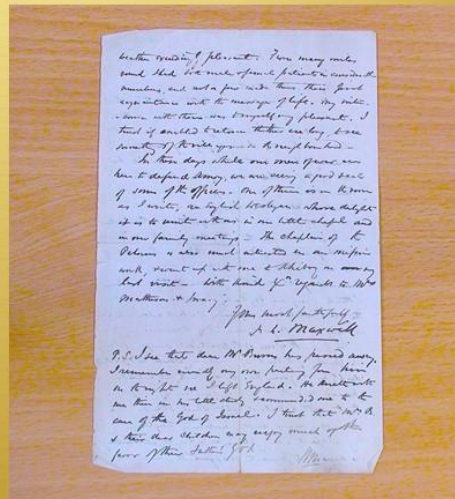 weather exceedingly pleasant. From many miles
round there were much of such patients in considerable
numbers, and not a few made there their first
acquaintance with the message of life. My inter-
course with them was to myself very pleasant. I
trust if enabled to return there ere long, to see
something of the villages in the neighbourhood.
In these days while our men of war are
here to defend Amoy, we are seeing a good deal
of some of the officers. One of them is in the room
as I write, an English Wesleyan whose delight
it is to unite with us in our little chapel and
in our family meetings. The chaplain of the
is also much interested in our mission
work, & went up with me to on my
last visit. With kind regards to Mrs
Matheson &
Yours most faithfully
J. L. Maxwell
P.S. I see that dear Mr Burns has passed away.
I remember vividly my own parting from him
on the night ere I left England. He knelt with
me then in his little study & commended me to the
care of the God of Israel. I trust that Mrs B.
& their dear children may enjoy much of the
favor of their father's God